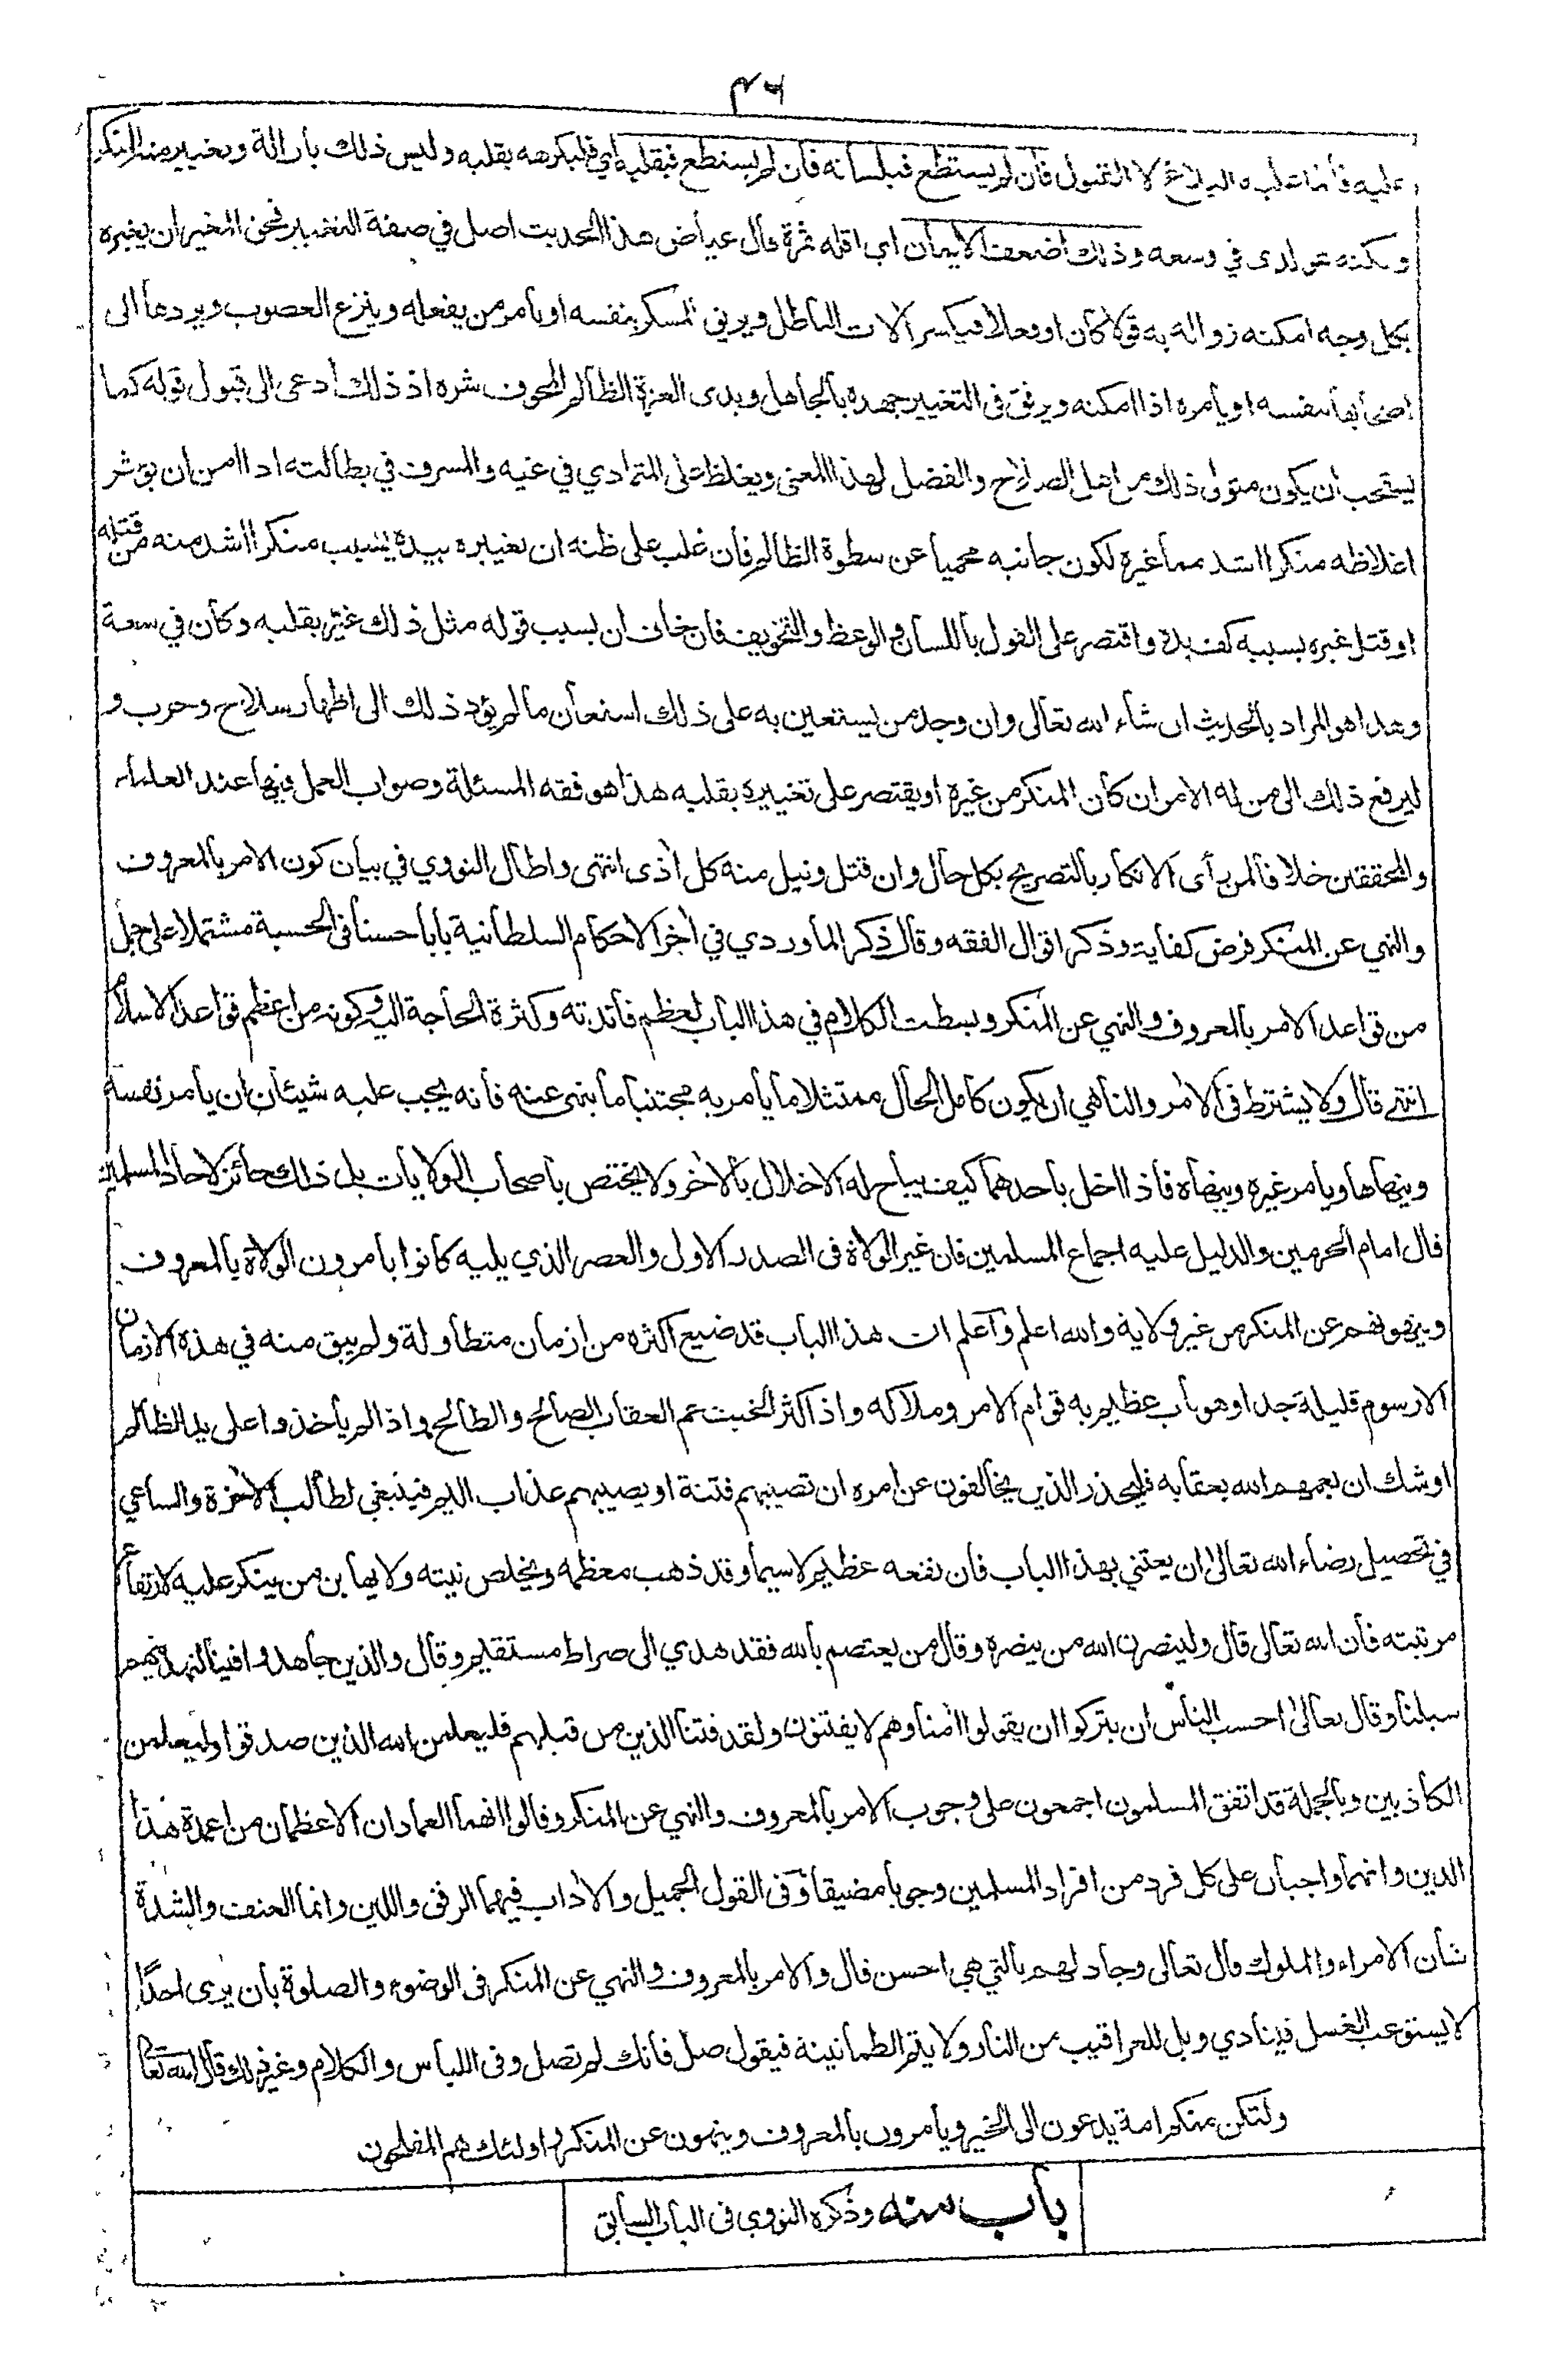 ٤٦
عليه فأنما عليه البلاغ لا القبول فأن لم يستطع فبلسأنه فأن لم يستطع فبقلبه أي فليكرهه بقلبه وليس ذلك بأزالة وتغيير منه للمنكر
ولكنه هو الذى في وسعه وذلك اضعف الايمأن اى اقله ثمرة قأل عيأض هذا الحديث اصل في صفة التغيير فحق المغير ان يغيره
بكل وجه امكنه زواله به قولا كأن او فعلا فيكسر آلات البأطل ويريق المسكر بنفسه او يأمر من يفعله وينزع الغصوب ويردهأ الى
اصحأبهأ بنفسه او يأمره اذا امكنه ويرفق فى التغيير جهده بألجأهل وبذى العزة الظألم المخوف شره اذ ذلك أدعى الى قبول قوله كما
يستحب ان يكون متولى ذلك من اهل الصلاح والفضل لهذا المعنى ويغلظ على المتمادي في غيه والمسرف في بطألته اذا امن ان يوثر
اغلاظه منكرا اشد ممأ غيره لكون جأنبه محميأ عن سطوة الظألم فأن غلب على ظنه ان تغييره بيده يسبب منكرا اشد منه من قتله
او قتل غيره بسببه كف يده واقتصر على القول بأللسأن والوعظ والتخويف فأن خأف ان يسبب قوله مثل ذلك غيّر بقلبه وكأن في سعة
وهذا هو المراد بألحديث ان شأء الله تعألى وان وجد من يستعين به على ذلك استعأن مألم يؤد ذلك الى اظهأر سلاح وحرب و
ليرفع ذلك الى من له الامر ان كأن المنكر من غيره او يقتصر على تغييره بقلبه هذا هو فقه المسئلة وصواب العمل فيهأ عند العلمأء
والمحققين خلافأ لمن رأى الانكأر بألتصريح بكل حأل وان قتل ونيل منه كل أذى انتهى واطأل النووي في بيأن كون الامر بألمعروف
والنهي عن المنكر فرض كفأية وذكر اقوال الفقه وقأل ذكر المأوردي في أخر الاحكأم السلطأنية بأبأ حسنأ فى الحسبة مشتملا على جمل
من قواعد الامر بألمعروف والنهي عن المنكر وبسطت الكلام في هذا البأب لعظم فأئدته وكثرة الحأجة اليه وكونه من اعظم قواعد الاسلام
انتهى قأل ولا يشترط فى الأمر والنأهي ان يكون كأمل الحأل ممتثلا مأ يأمر به مجتنبأ مأ ينهى عنه فأنه يجب عليه شيئأن ان يأمر نفسه
وينهأهأ ويأمر غيره وينهأه فأذا اخل بأحدهمأ كيف يبأح له الاخلال بألأخر ولا يختص بأصحأب الولايأت بل ذلك جأئز لأحأد المسلمين
قأل امأم الحرمين والدليل عليه اجمأع المسلمين فأن غير الولاة فى الصدر الاول والعصر الذي يليه كأنوا يأمرون الولاة بألمعروف
وينهونهم عن المنكر من غير ولاية والله اعلم وأعلم ان هذا البأب قد ضيع اكثره من ازمأن متطأولة ولم يبق منه في هذه الازمأن
الا رسوم قليلة جدا وهو بأب عظيم به قوام الامر وملاكه واذا كثر الخبث عم العقأب الصألح والطألح واذا لم يأخذوا على يد الظألم
اوشك ان يعمهم الله بعقأبه فليحذر الذين يخألفون عن امره ان تصيبهم فتنة او يصيبهم عذاب اليم فينبغي لطألب الأخرة والسأعي
في تحصيل رضأء الله تعألى ان يعتني بهذا البأب فأن نفعه عظيم لاسيمأ وقد ذهب معظمه ويخلص نيته ولا يهأبن من ينكر عليه لارتفأع
مرتبته فأن الله تعألى قأل ولينصرن الله من ينصره وقأل من يعتصم بألله فقد هدي الى صراط مستقيم وقأل والذين جأهدوا فينأ لنهدينهم
سبلنأ وقأل تعألى احسب النأس ان يتركوا ان يقولوا أمنأ وهم لا يفتنون ولقد فتنأ الذين من قبلهم فليعلمن الله الذين صدقوا وليعلمن
الكأذبين وبألجملة قد اتفق المسلمون اجمعون على وجوب الامر بألمعروف والنهي عن المنكر وقألوا انهمأ العمادان الاعظمأن من اعمدة هذا
الدين وانهمأ واجبأن على كل فرد من افراد المسلمين وجوبأ مضيقأ وفى القول الجميل والأداب فيهمأ الرفق واللين وانمأ العنف والشدة
شأن الامراء والملوك قأل تعألى وجأدلهم بألتي هي احسن قأل والامر بألمعروف والنهي عن المنكر فى الوضوء والصلوة بأن يرى احدًا
لا يستوعب الغسل فينأدي ويل للعراقيب من النأر ولا يتم الطمأنينة فيقول صل فأنك لم تصل وفى اللبأس والكلام وغير ذلك قأل الله تعألى
ولتكن منكم امة يدعون الى الخير ويأمرون بألمعروف وينهون عن المنكر واولئك هم المفلحون
بأب منه وذكره النووي فى البأب السأبق